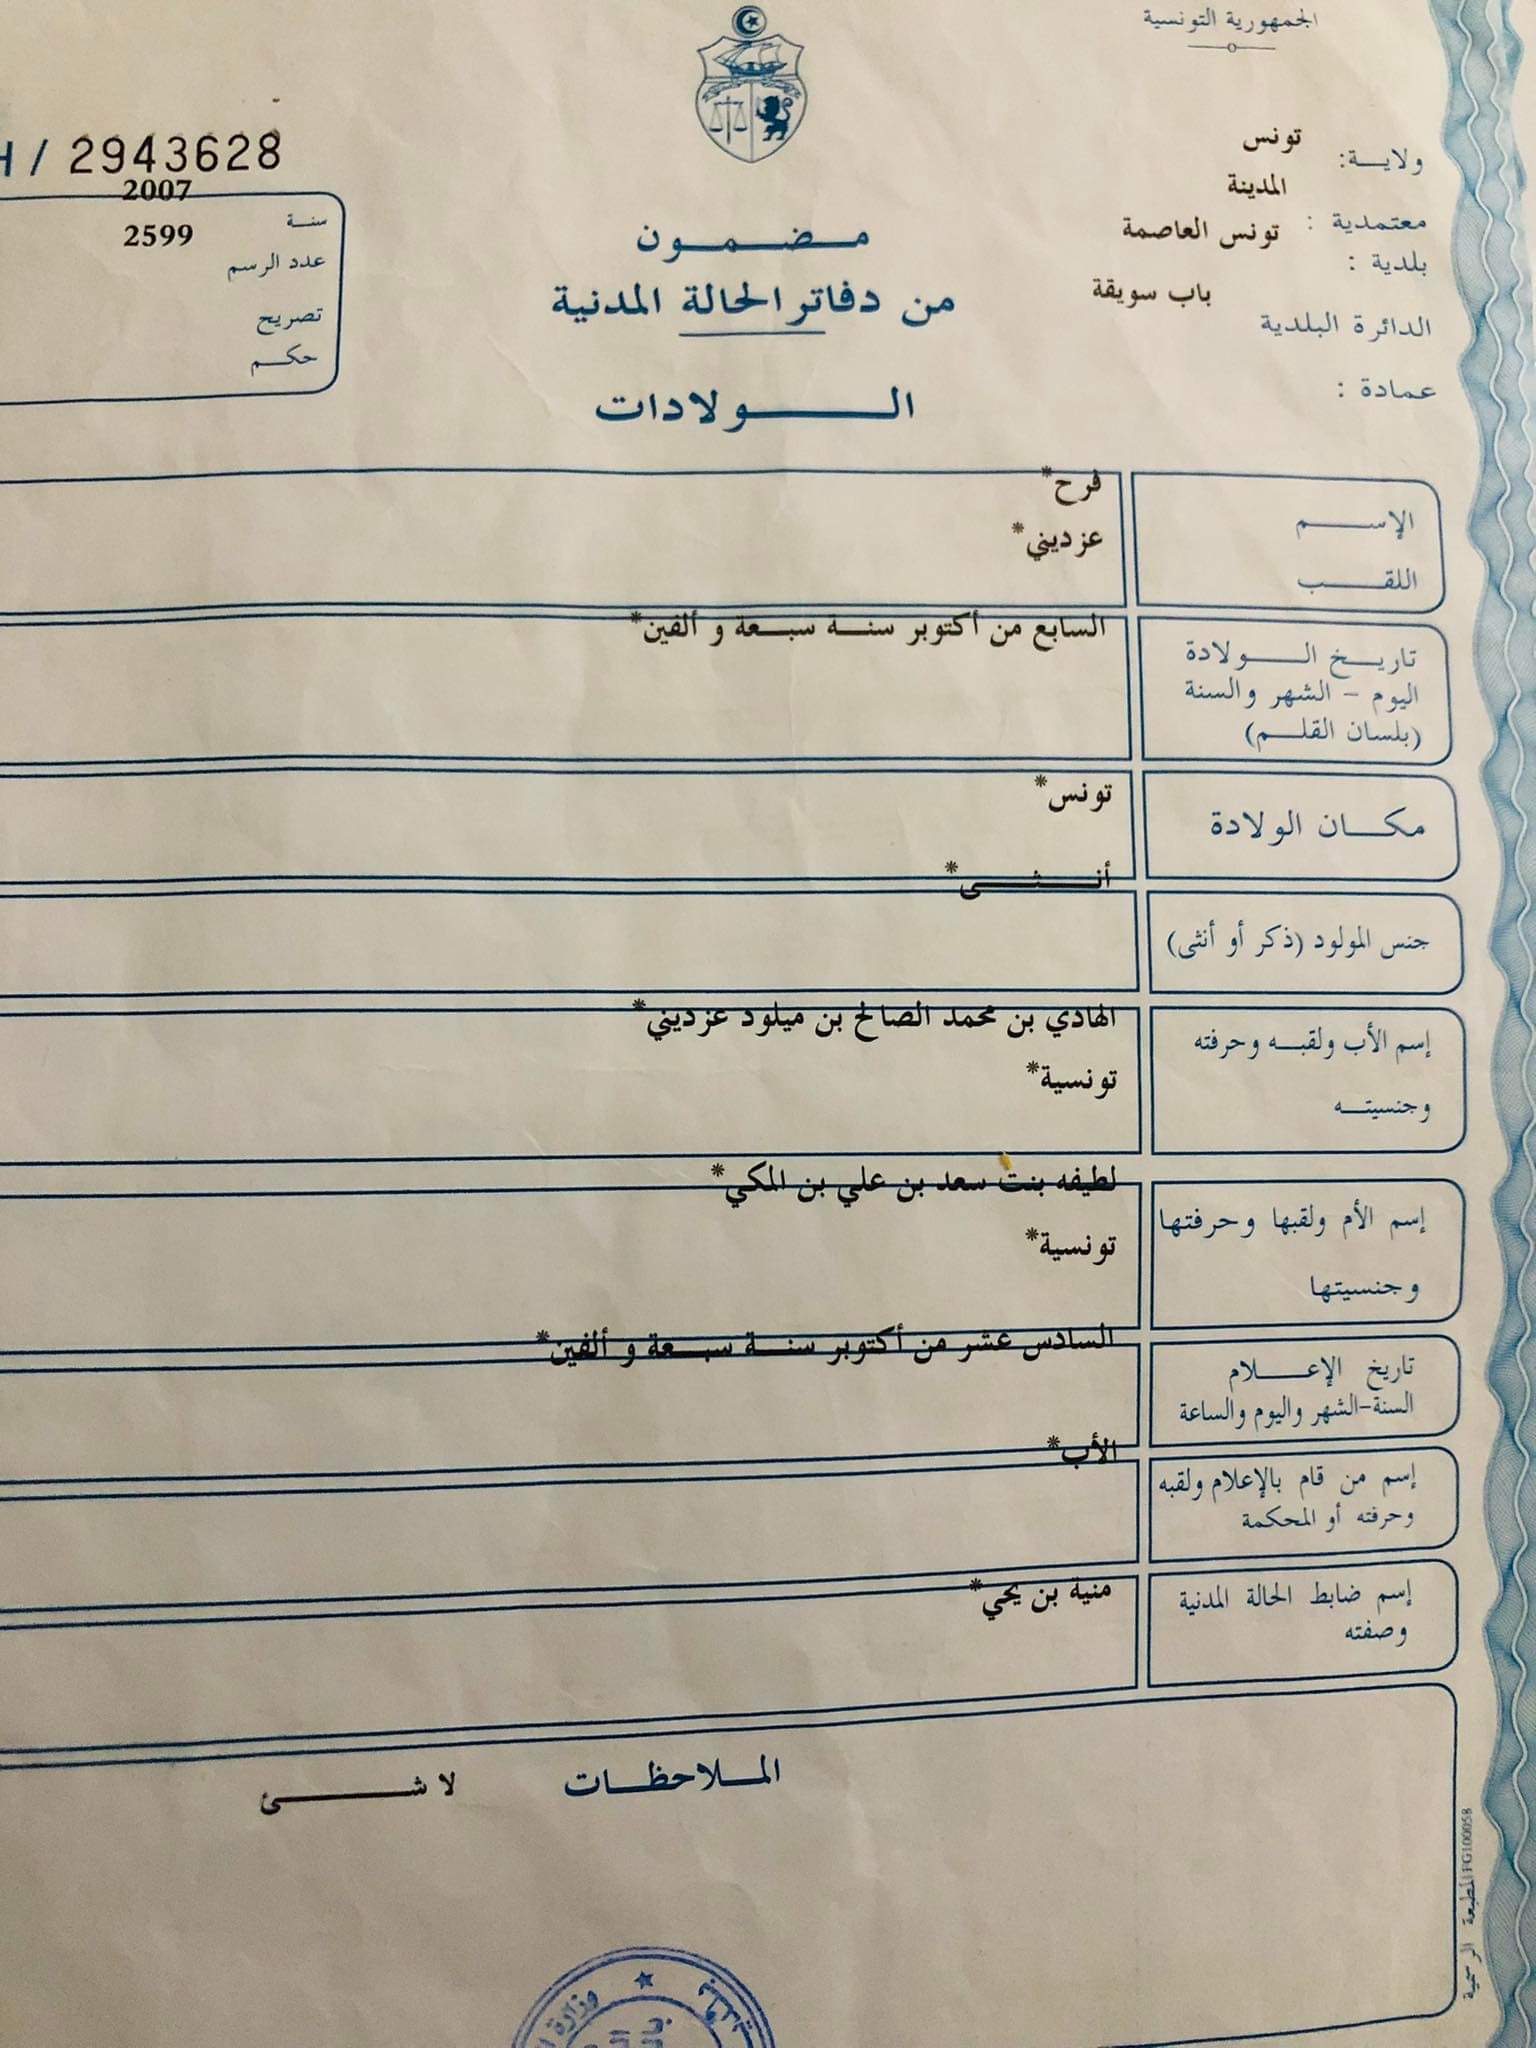 الجمهورية التونسية
ولاية: تونس
معتمدية : المدينة
بلدية : تونس العاصمة
الدائرة البلدية باب سويقة
عمادة :
H / 2943628
سنة 2007
عدد الرسم 2599
تصريح
حكم
مضمون
من دفاتر الحالة المدنية
الولادات
الإسم فرح*
اللقب عزديني*
تاريخ الولادة السابع من أكتوبر سنة سبعة و ألفين*
اليوم - الشهر والسنة
(بلسان القلم)
مكان الولادة تونس*
جنس المولود (ذكر أو أنثى) أنثى*
إسم الأب ولقبه وحرفته الهادي بن محمد الصالح بن ميلود عزديني*
وجنسيته تونسية*
إسم الأم ولقبها وحرفتها لطيفه بنت سعد بن علي بن المكي*
وجنسيتها تونسية*
تاريخ الإعلام السادس عشر من أكتوبر سنة سبعة و ألفين*
السنة-الشهر واليوم والساعة
إسم من قام بالإعلام ولقبه الأب*
وحرفته أو المحكمة
إسم ضابط الحالة المدنية منية بن يحي*
وصفته
الملاحظات لا شئ
المطبعة الرسمية FG100058
وزارة
بلدية